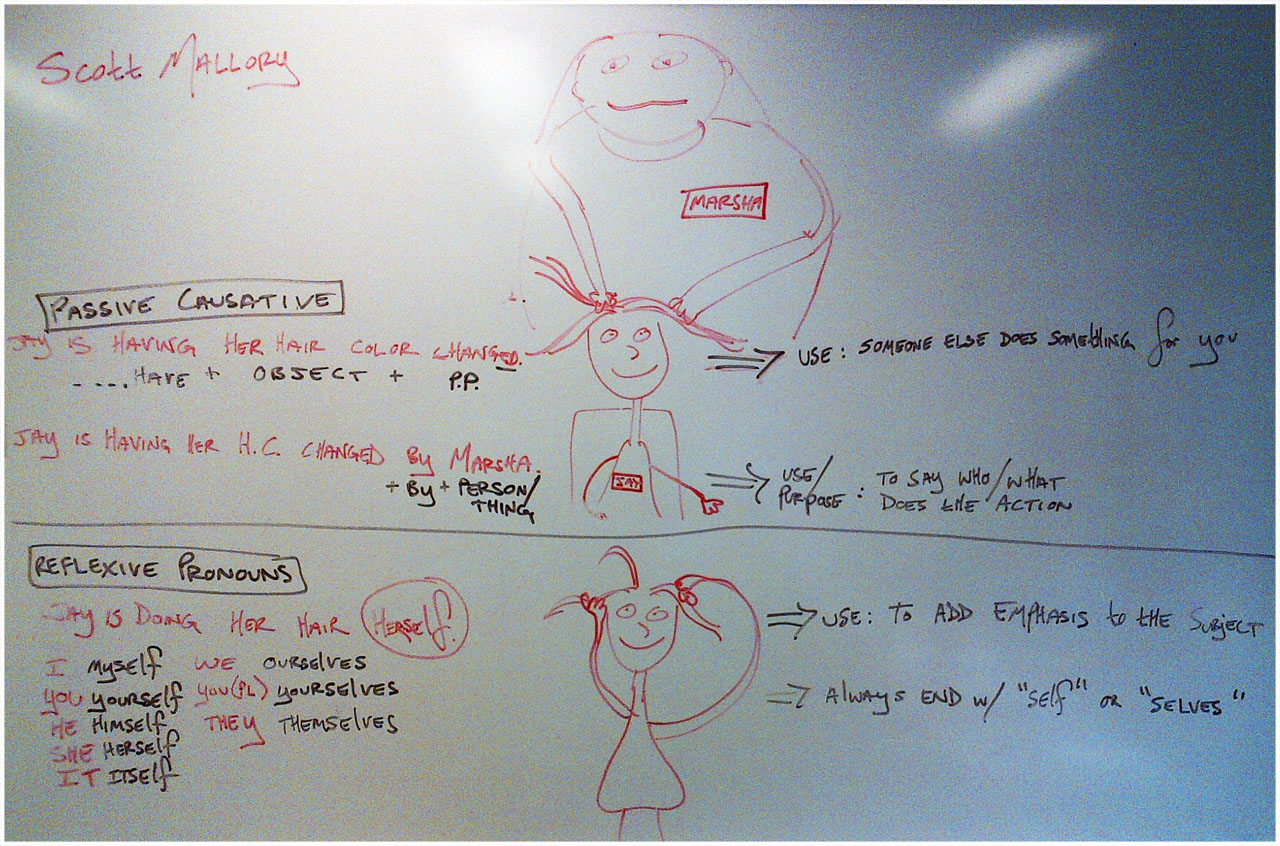 Scott MALLORY
MARSHA
PASSIVE CAUSATIVE
JAY IS HAVING HER HAIR COLOR CHANGED.
.... HAVE + OBJECT + P.P.
⇒ USE: SOMEONE ELSE DOES SOMEthING for you
JAY IS HAVING HER H.C. CHANGED BY MARSHA.
+ BY + PERSON/
THING
JAY
⇒ USE/
PURPOSE: TO SAY WHO/WHAT
DOES tHE ACTION
REFLEXIVE PRONOUNS
JAY IS DOING HER HAIR HERSELF.
⇒ USE: TO ADD EMPHASIS to tHE SUBJECT
I MYSELF WE OURSELVES
YOU YOURSELF YOU(PL) YOURSELVES
⇒ ALWAYS END W/ "SELF" OR "SELVES"
HE HIMSELF THEY THEMSELVES
SHE HERSELF
IT ITSELF